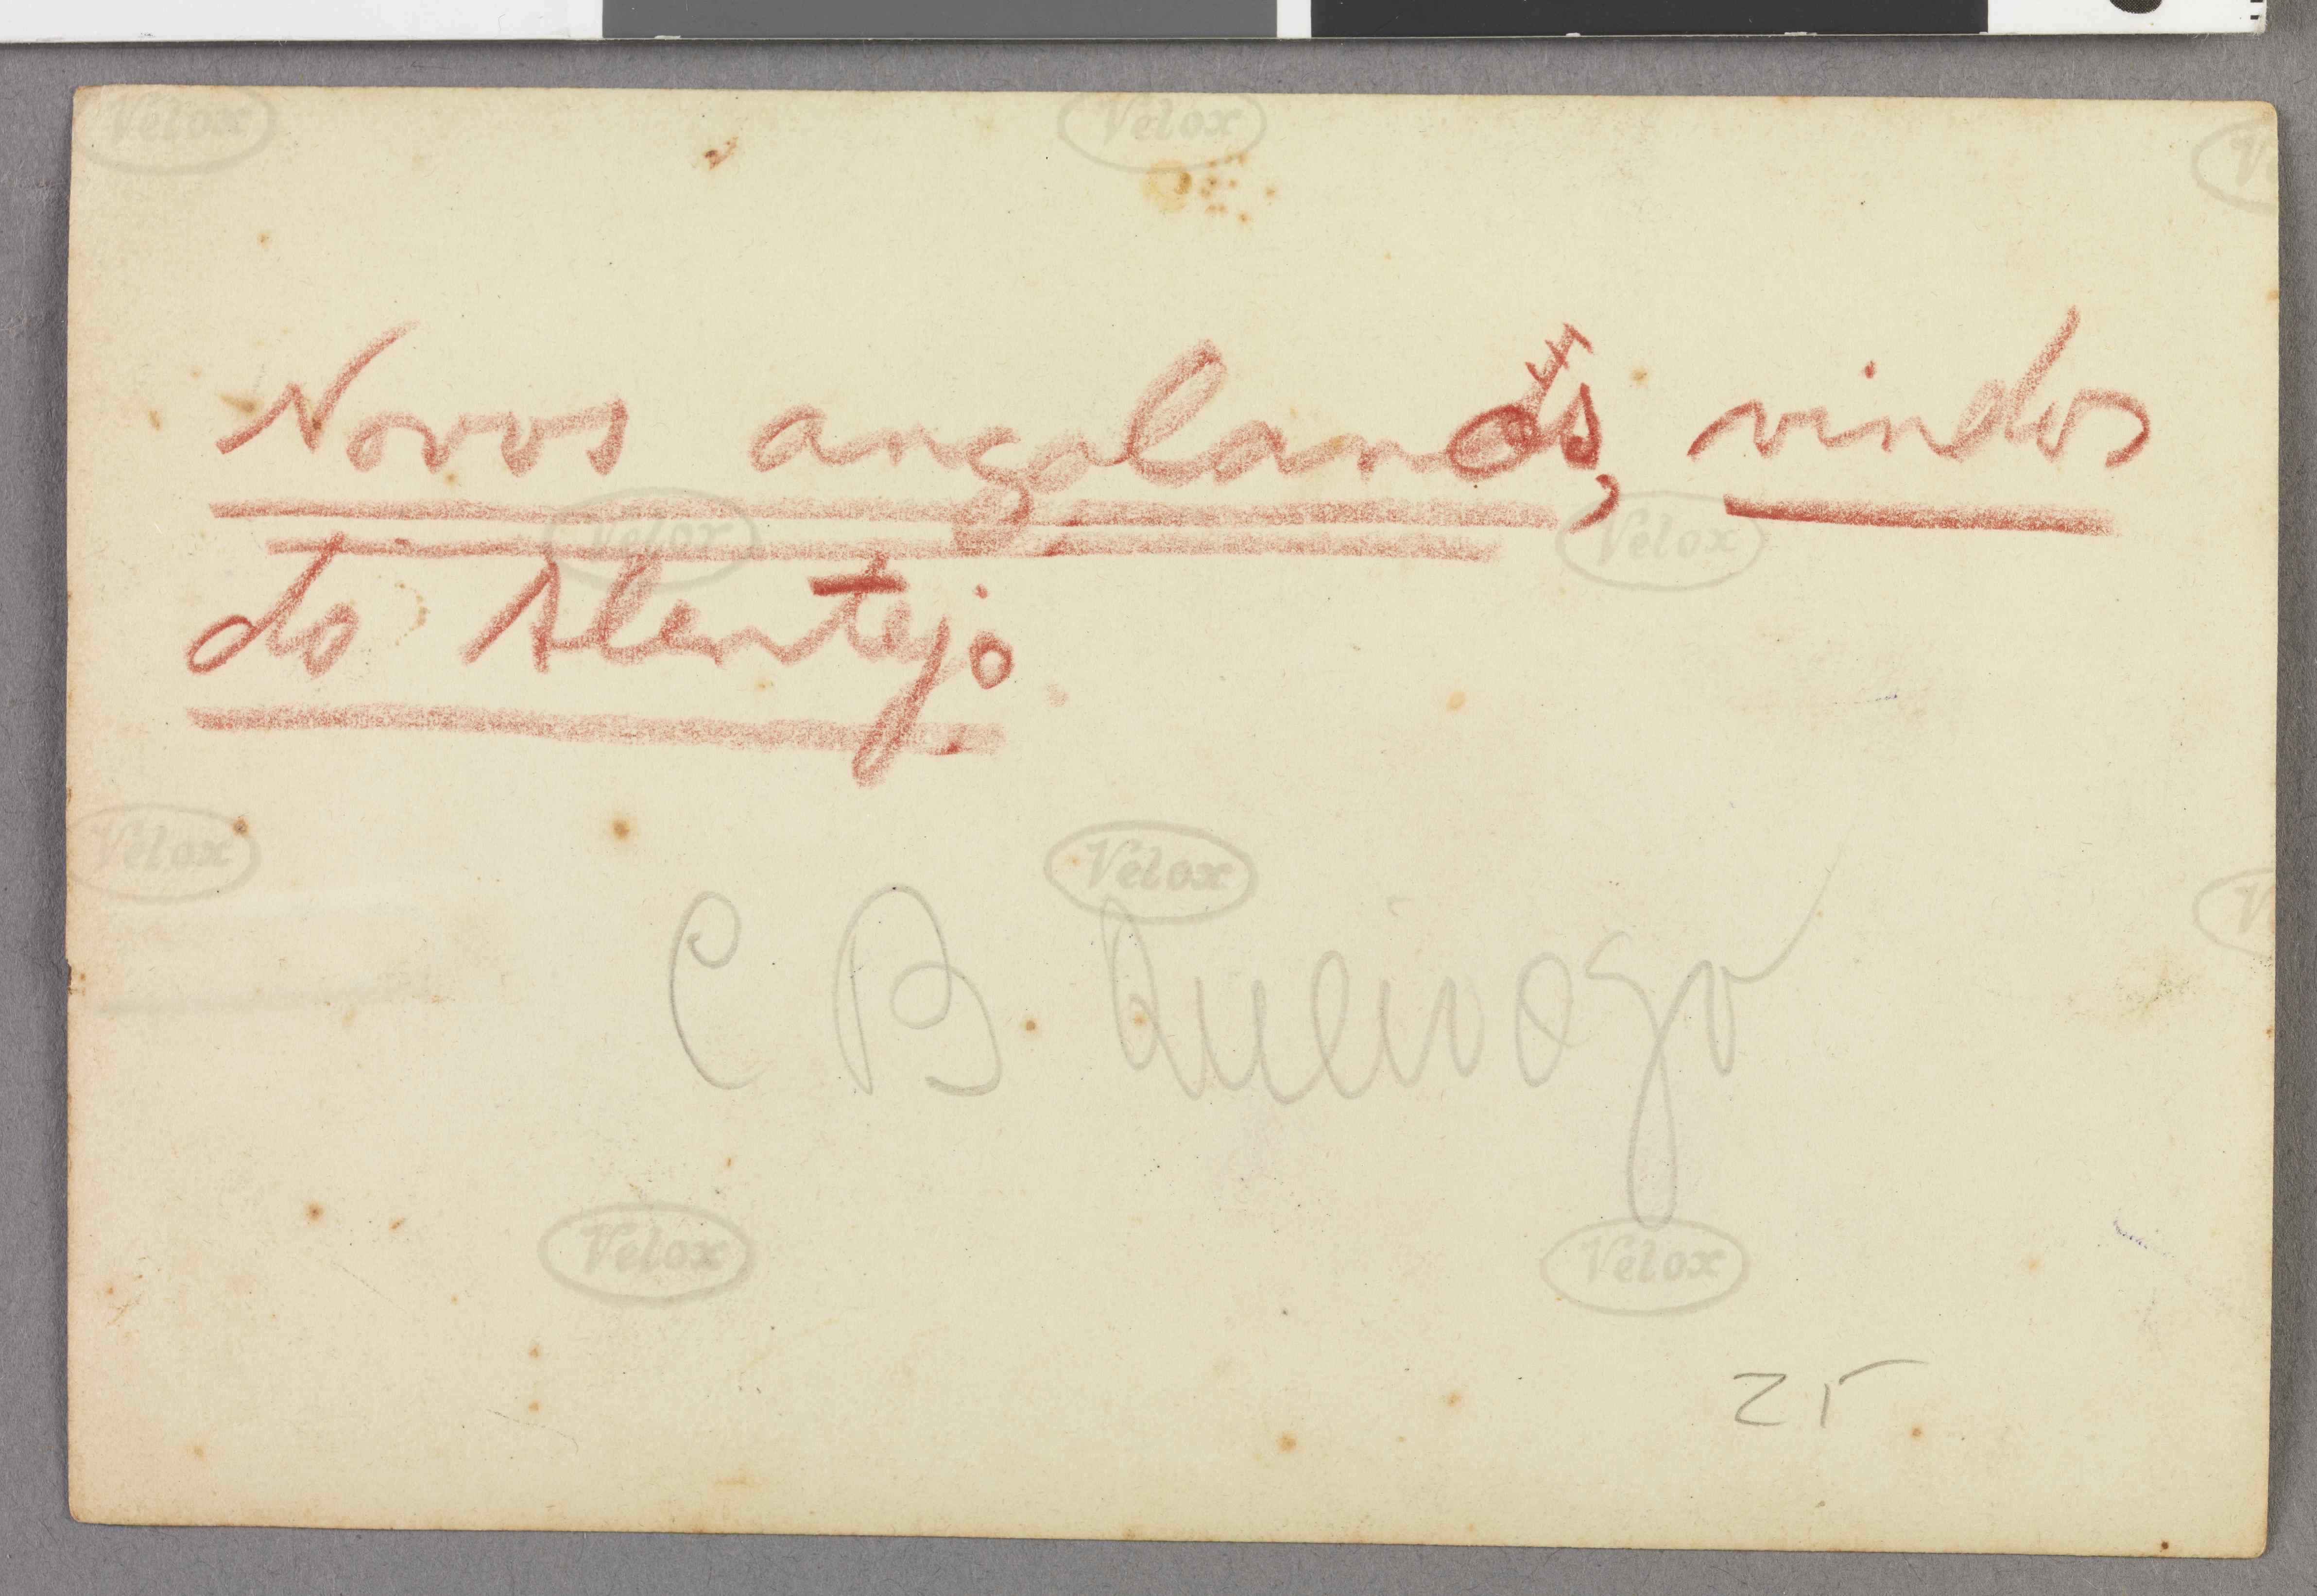 Velox Velox V
Novos angolanos, vindos
Velox Velox
do Alentejo.
Velox Velox V
C B Queiroga
Velox Velox
25